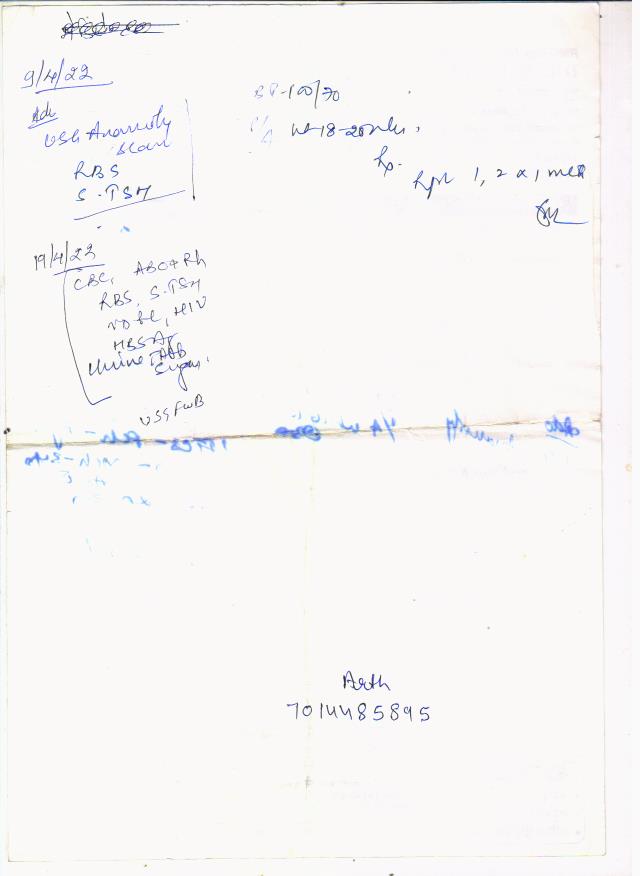 9/4/22
Adv
USG Anomaly
Scan
RBS
S.TSH
BP-100/70
P/A ut 18-20wks.
Rp.
Rpt 1, 2 x 1 mth
19/4/22
CBC, ABO & Rh
RBS, S.TSH
VDRL, HIV
HBSAg
Urine Alb
Sugar.
USG FWB
Arth
7014485895